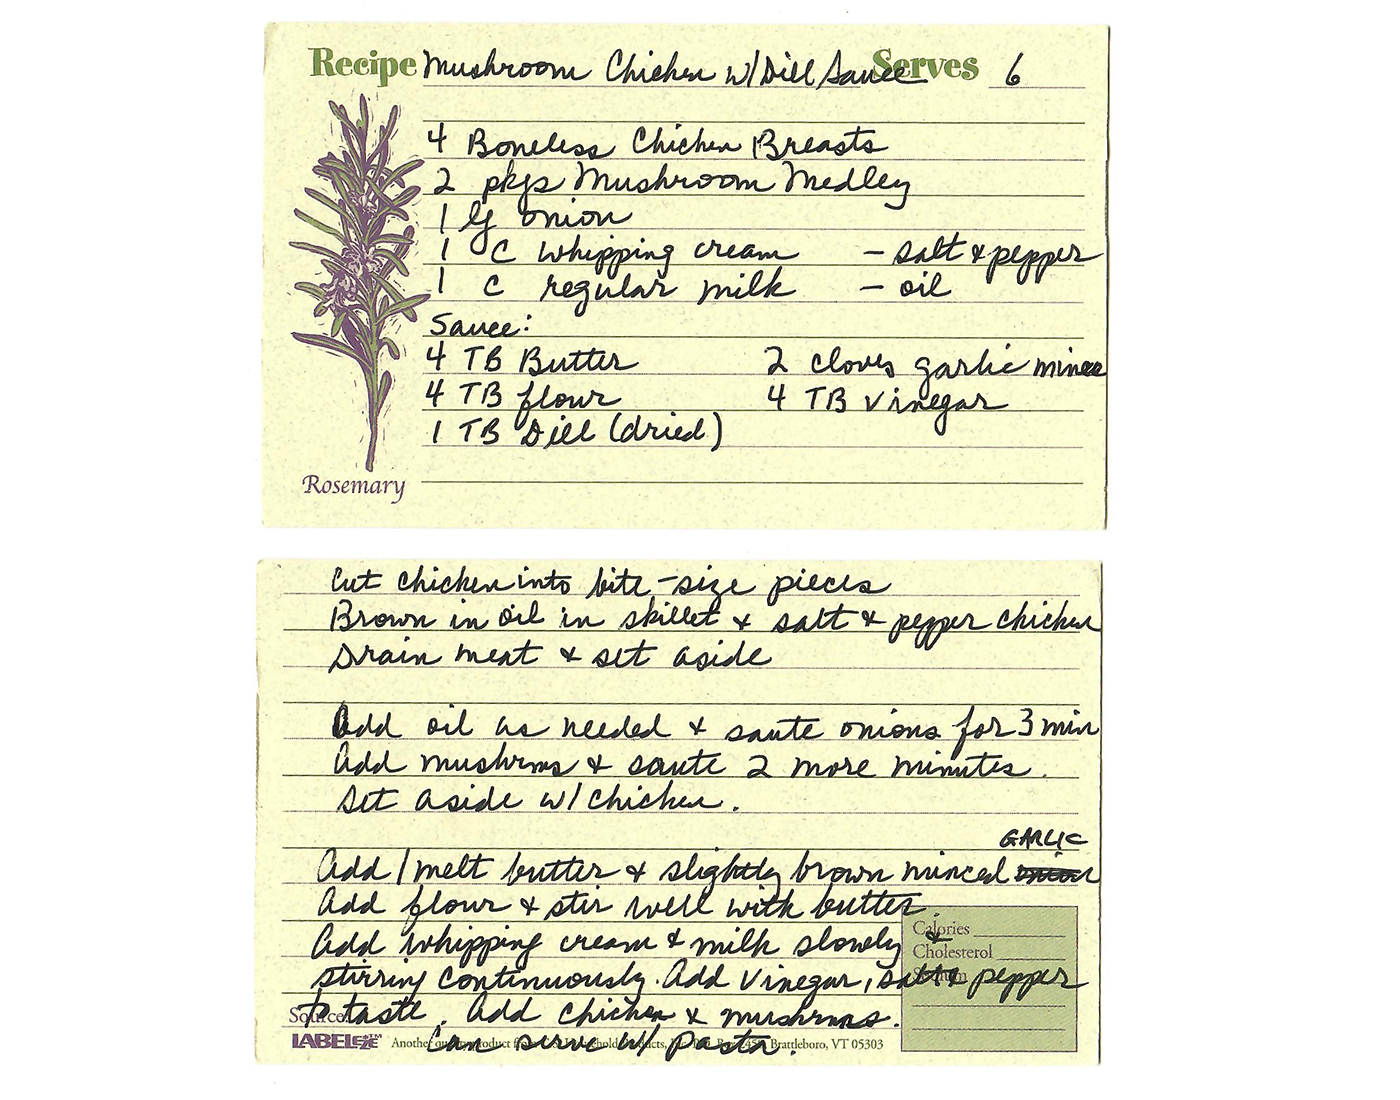 Recipe Mushroom Chicken w/Dill Sauce Serves 6
4 Boneless Chicken Breasts
2 pkgs Mushroom Medley
1 lg onion
1 C whipping cream - salt & pepper
1 C regular milk - oil
Sauce:
4 TB Butter 2 cloves garlic mince
4 TB flour 4 TB vinegar
1 TB Dill (dried)
Rosemary
Cut chicken into bite-size pieces
Brown in oil in skillet & salt & pepper chicken
Drain meat & set aside
Add oil as needed & saute onions for 3 min
Add mushrms & saute 2 more minutes.
Set aside w/chicken.
GARLIC
Add/melt butter & slightly brown minced
Add flour & stir well with butter.
Calories
Add whipping cream & milk slowly &
Cholesterol
stirring continuously. Add vinegar, salt & pepper
Sodium
to taste. Add chicken & mushrms.
Source
Can serve w/ pasta.
LABELeze™ Another quality product from Products, Inc. P.O. Box Brattleboro, VT 05303